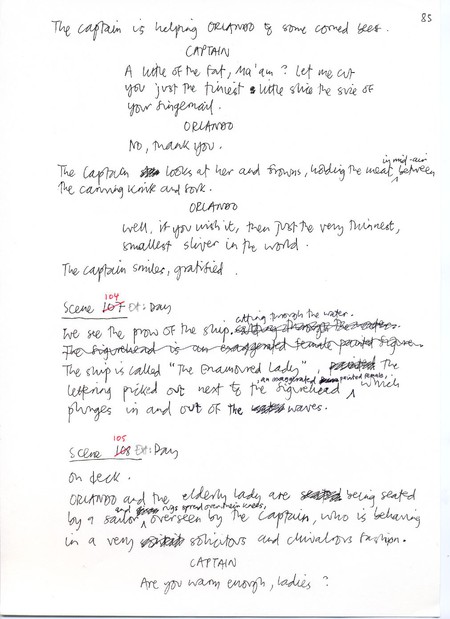 85
The Captain is helping ORLANDO to some corned beef.
CAPTAIN
A little of the fat, Ma'am? Let me cut
you just the tiniest little slice the size of
your fingernail.
ORLANDO
No, thank you.
The Captain looks at her and frowns, holding the meat in mid-air between
the carving knife and fork.
ORLANDO
Well, if you wish it, then just the very thinnest,
smallest sliver in the world.
The Captain smiles, gratified.
Scene 107 104 Ext: Day
We see the prow of the ship cutting through the water. cutting through the water.
The figurehead is an exaggerated female painted figure.
The ship is called "The Enamoured Lady", the
lettering picked out next to the figurehead, an exaggerated painted female, which
plunges in and out of the waves.
Scene 108 105 Ext: Day
On deck.
ORLANDO and the elderly lady are being seated
by a sailor and rugs spread over their knees, overseen by the Captain, who is behaving
in a very solicitous and chivalrous fashion.
CAPTAIN
Are you warm enough, ladies?